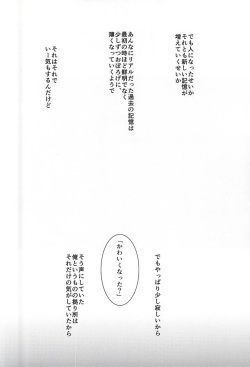 でも人になったせいか
それとも新しい記憶が
増えていくせいか
あんなにリアルだった過去の記憶は
最初の時ほど鮮明でなく
少しずつおぼろげに、
薄くなっていくようで
それはそれで
いー気もするんだけど
でもやっぱり少し寂しいから
「かわいくなった？」
そう声にしていた
俺というものの拠り所は
それだけの気がしていたから